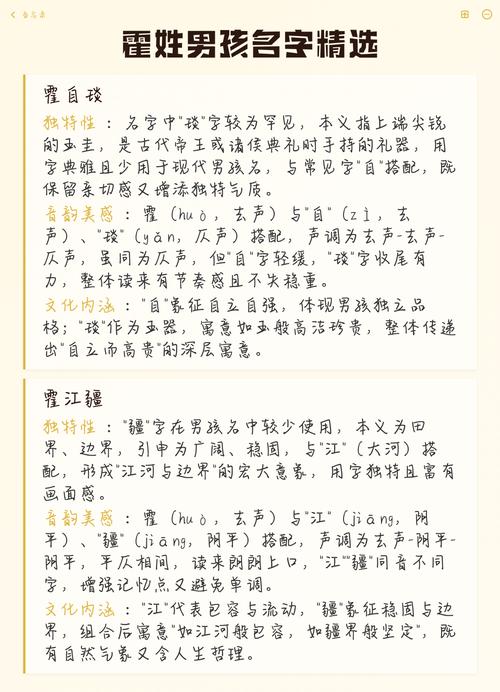 备忘录
霍姓男孩名字精选
霍自琰
独特性：名字中"琰"字较为罕见，本义指上端尖锐
的玉圭，是古代帝王或诸侯典礼时手持的礼器，用
字典雅且少用于现代男孩名，与常见字"自"搭配，既
保留亲切感又增添独特气质。
音韵美感：霍（huò，去声）与"自"（zì，去
声）、"琰"（yǎn，仄声）搭配，声调为去声-去声-
仄声，虽同为仄声，但"自"字轻缓，"琰"字收尾有
力，整体读来有节奏感且不失稳重。
文化内涵："自"象征自立自强，体现男孩独立品
格；"琰"作为玉器，寓意如玉般高洁珍贵，整体传递
出"自立而高贵"的深层寓意。
霍江疆
独特性："疆"字在男孩名中较少使用，本义为田
界、边界，引申为广阔、稳固，与"江"（大河）搭
配，形成"江河与边界"的宏大意象，用字独特且富有
画面感。
音韵美感：霍（huò，去声）与"江"（jiāng，阴
平）、"疆"（jiāng，阴平）搭配，声调为去声-阴平-
阴平，平仄相间，读来朗朗上口，"江""疆"同音不同
字，增强记忆点又避免单调。
文化内涵："江"代表包容与流动，"疆"象征稳固与边
界，组合后寓意"如江河般包容，如疆界般坚定"，既
有自然气象又含人生哲理。